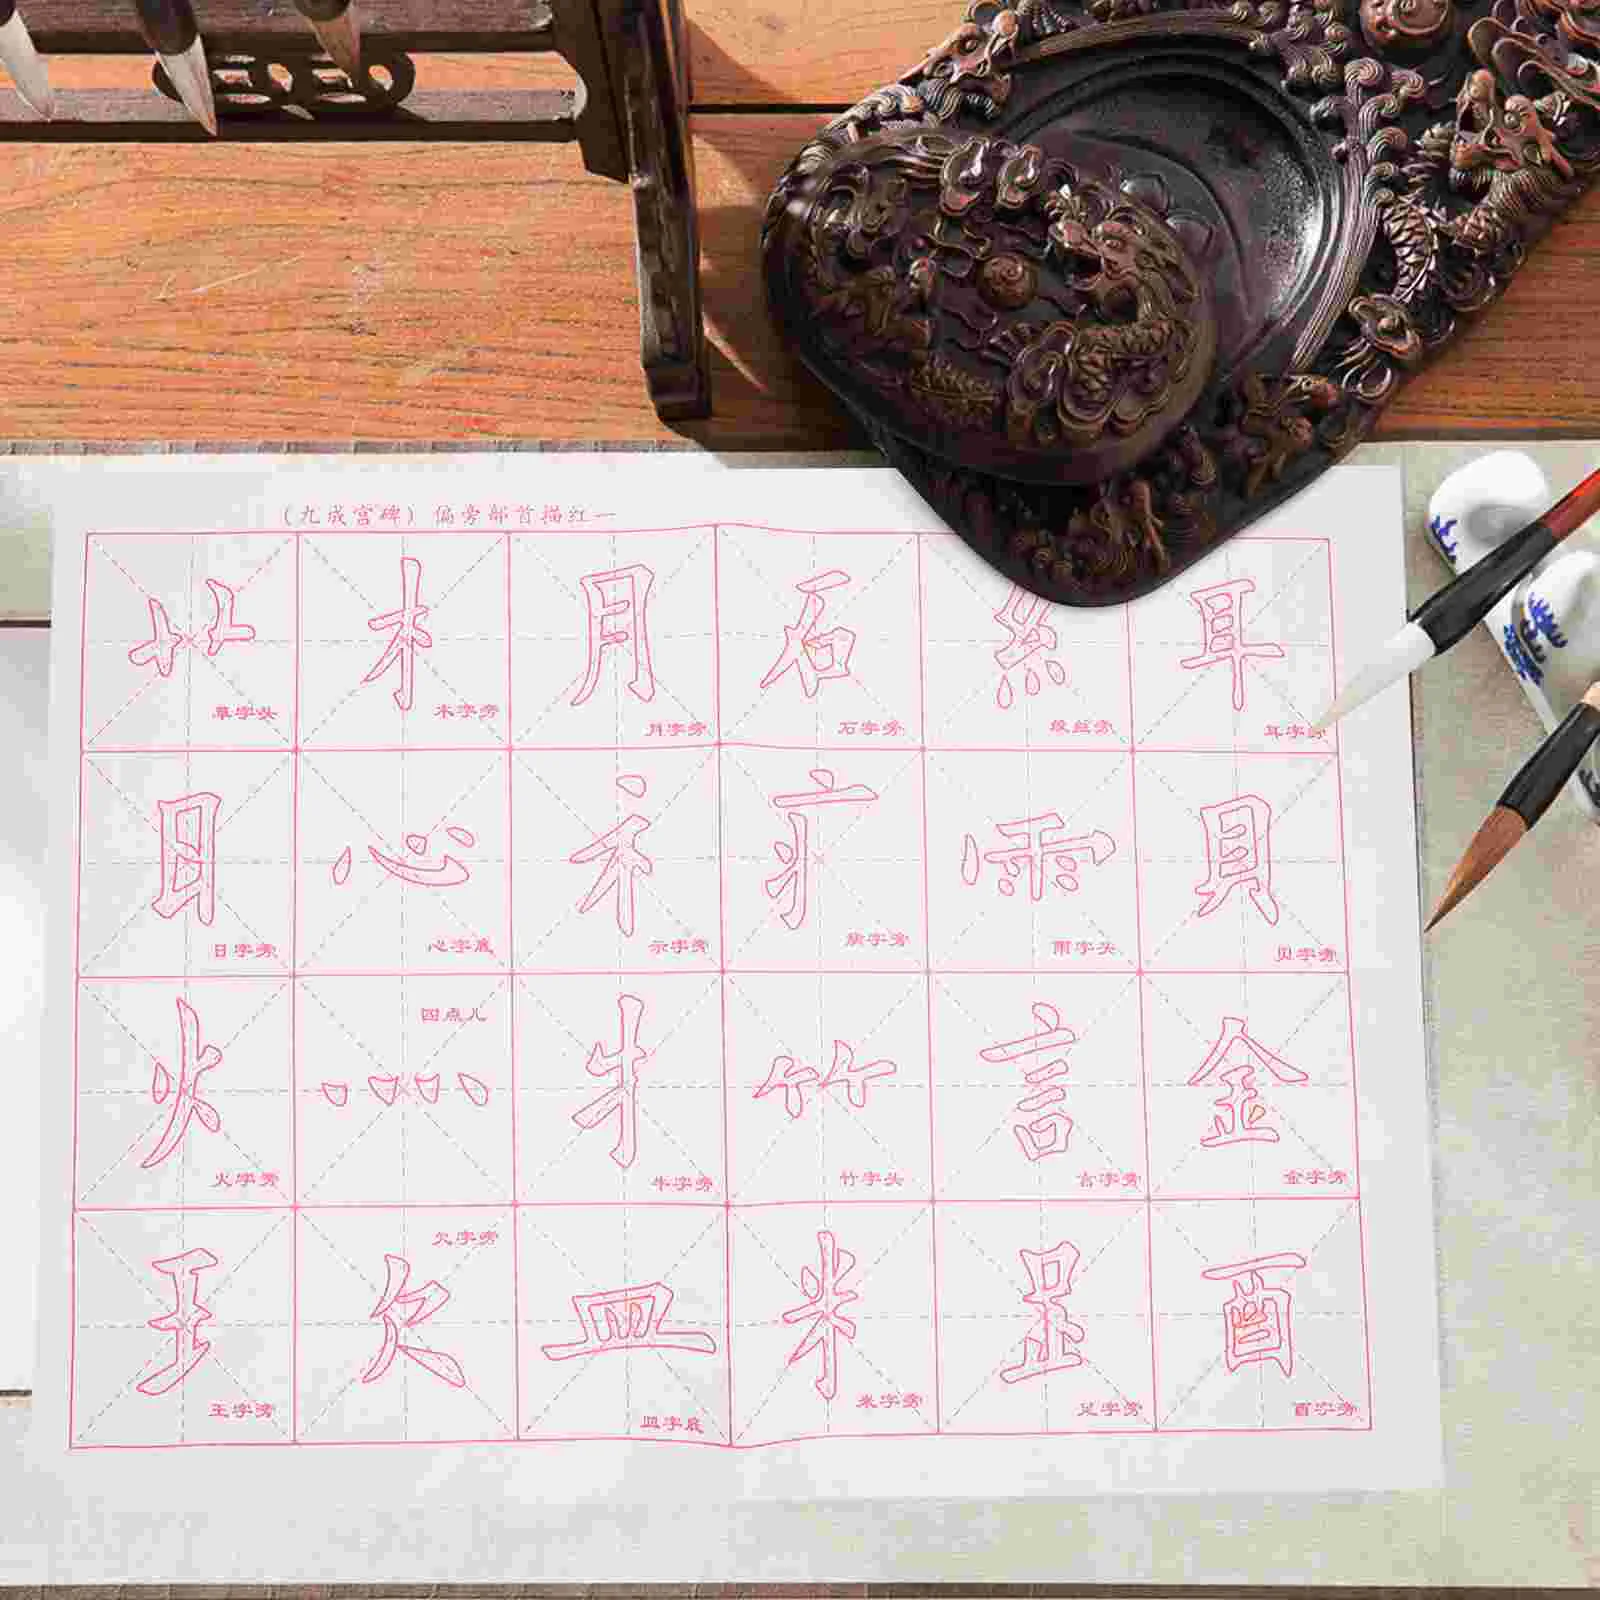 (九成宫碑) 偏旁部首描红一
艹 木 月 石 糹 耳
草字头 木字旁 月字旁 石字旁 绞丝旁 耳字旁
日 心 礻 疒 雨 貝
日字旁 心字底 示字旁 病字旁 雨字头 贝字旁
四点儿
火 灬 牜 竹 言 金
火字旁 牛字旁 竹字头 言字旁 金字旁
欠字旁
王 欠 皿 米 𧾷 酉
王字旁 皿字底 米字旁 足字旁 酉字旁